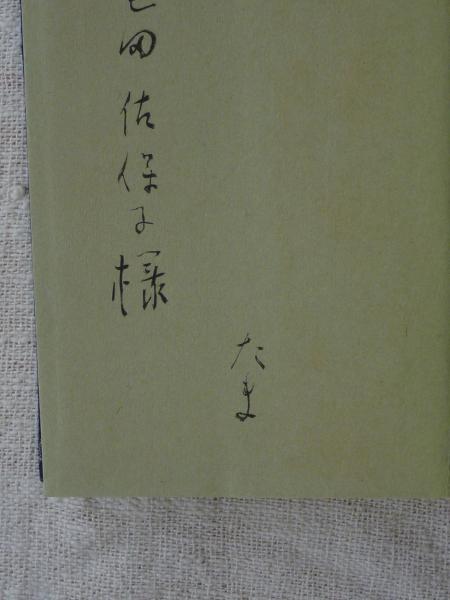 田佐保子様
たま